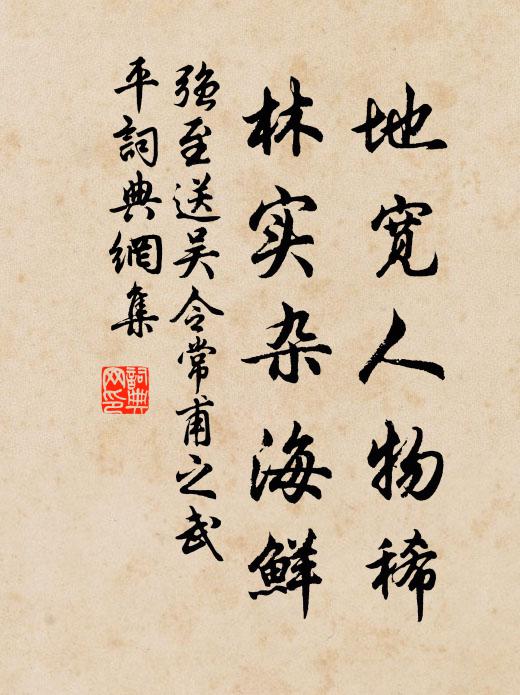 地宽人物稀
林实杂海鲜
强至送吴令常甫之武
平詞典網集
詞典
网印